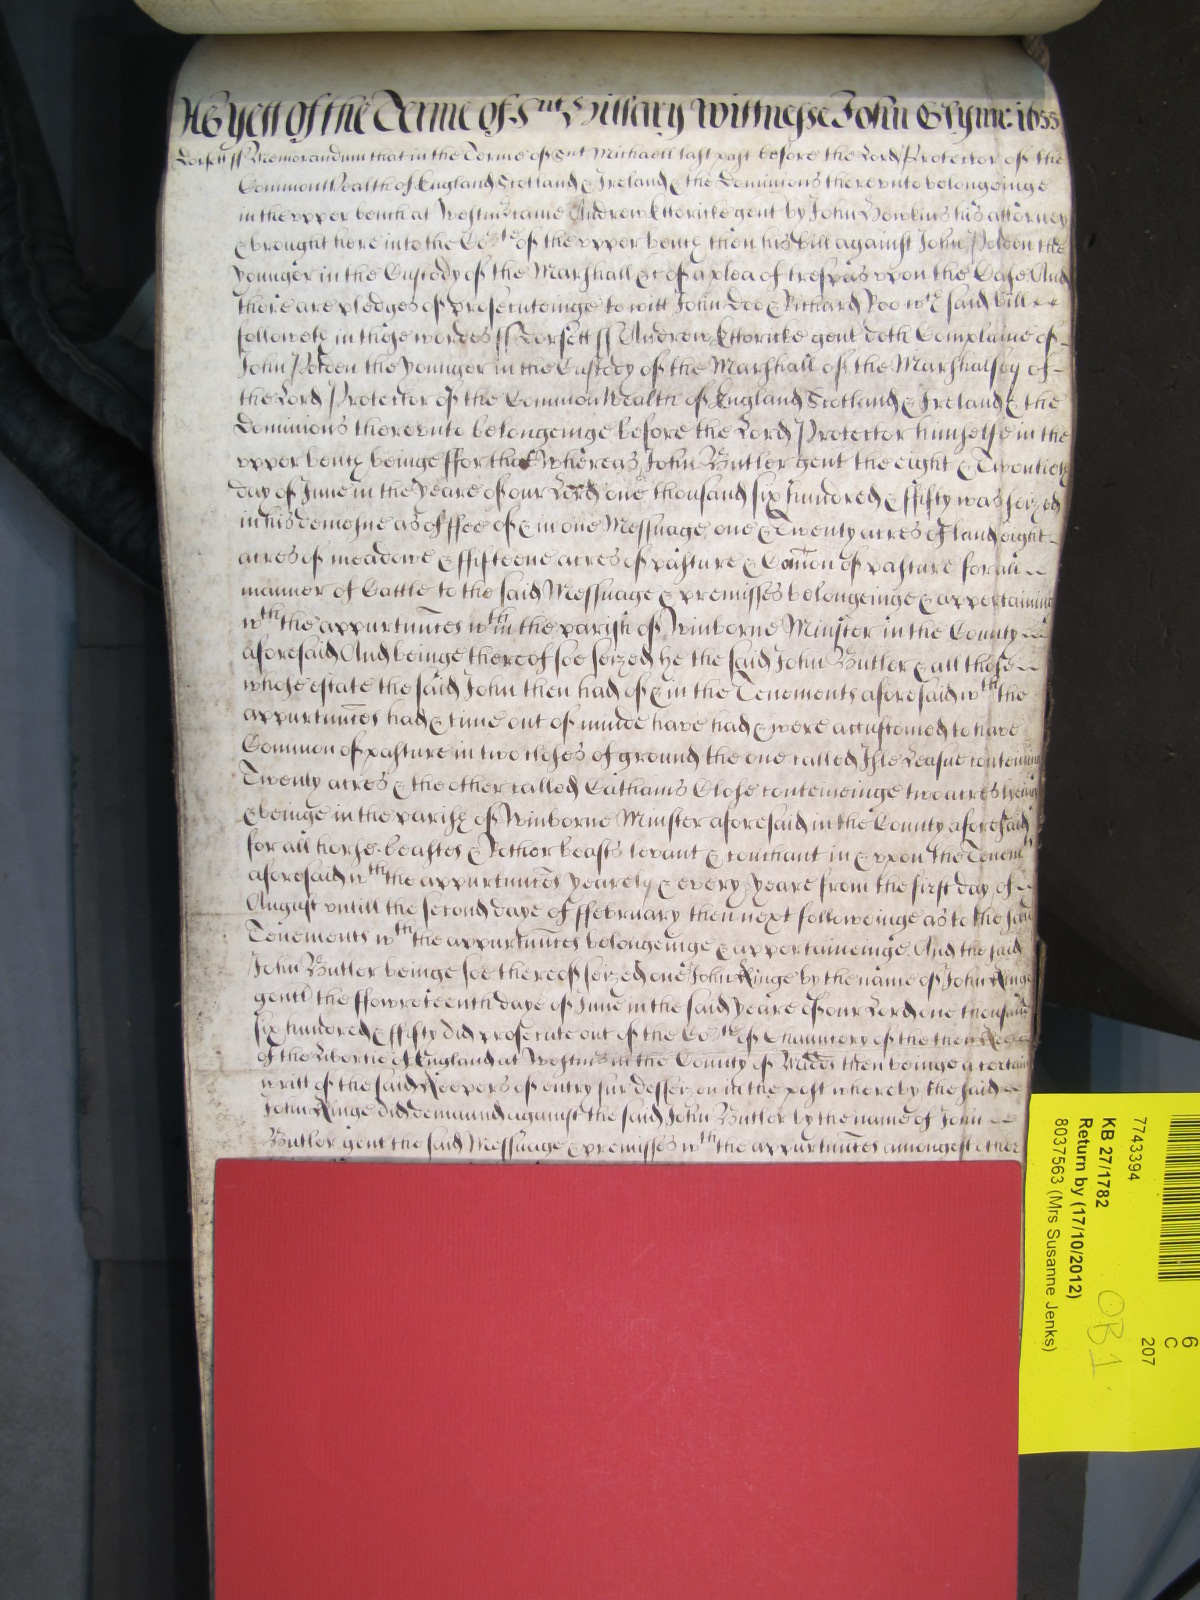 As yett of the Terme of Snt Hillary Wittnesse John Glynne 1655
Dorsett ss Memorandum that in the Terme of Snt Michaell last past before the Lord Protector of the
CommonWealth of England Scotland & Ireland & the Dominions thereunto belongeinge
in the upper bench at Westmr came Andrew Ettoricke gent by John Howkins his attorney
& brought here into the Co:te of the upper bench then his bill against John Polden the
younger in the Custody of the Marshall &c of a plea of trespas upon the Case And
there are pledges of prosecuteinge to witt John Doe & Richard Roo wch said bill
followeth in these wordes ss Dorsett ss Andrew Ettoricke gent doth Complaine of
John Polden the younger in the Custody of the Marshall of the Marshalsey of
the Lord Protector of the CommonWealth of England Scotland & Ireland & the
Dominions thereunto belongeinge before the Lord Protector himselfe in the
upper bench beinge ffor that Whereas John Butler gent the eight & Twentieth
day of June in the yeare of our Lord one thousand six hundred & ffifty was seized
in his demesne as of ffee of & in one Messuage one & Twenty acres of land eight
acres of meadowe & ffifteene acres of pasture & Comon of pasture for all
manner of Cattle to the said Messuage & premisses belongeinge & apperteining
wth the appurtunces wthin the parish of Winborne Minster in the County
aforesaid And beinge thereof soe seized he the said John Butler & all those
whose estate the said John then had of & in the Tenements aforesaid wth the
appurtunces had & time out of minde have had & were accustomed to have
Common of pasture in two closes of ground the one called Isle Leasue conteining
Twenty acres & the other called Cathams Close conteineinge two acres lyeing
& beinge in the parish of Winborne Minster aforesaid in the County aforesaid
for all horse beastes & other beasts levant & couchant in & upon the Tenemts
aforesaid wth the appurtunces yearely & every yeare from the first day of
August untill the second daye of ffebruary then next followeinge as to the said
Tenements wth the appurtunces belongeinge & apperteineinge And the said
John Butler beinge soe thereof seized one John Ringe by the name of John Ringe
gent the ffowreteenth daye of June in the said yeare of our Lord one thousand
six hundred & ffifty did prosecute out of the Co:te of Chauncery of the then Keepers
of the Libertie of England at Westmr in the County of Midds then beinge a certain
writt of the said Keepers of entry sur disseizen in the post whereby the said
John Ringe did demaund against the said John Butler by the name of John
Butler gent the said Messuage & premisses wth the appurtunces amongest other
7743394
KB 27/1782
Return by (17/10/2012)
8037563 (Mrs Susanne Jenks)
6
C
207
OB1